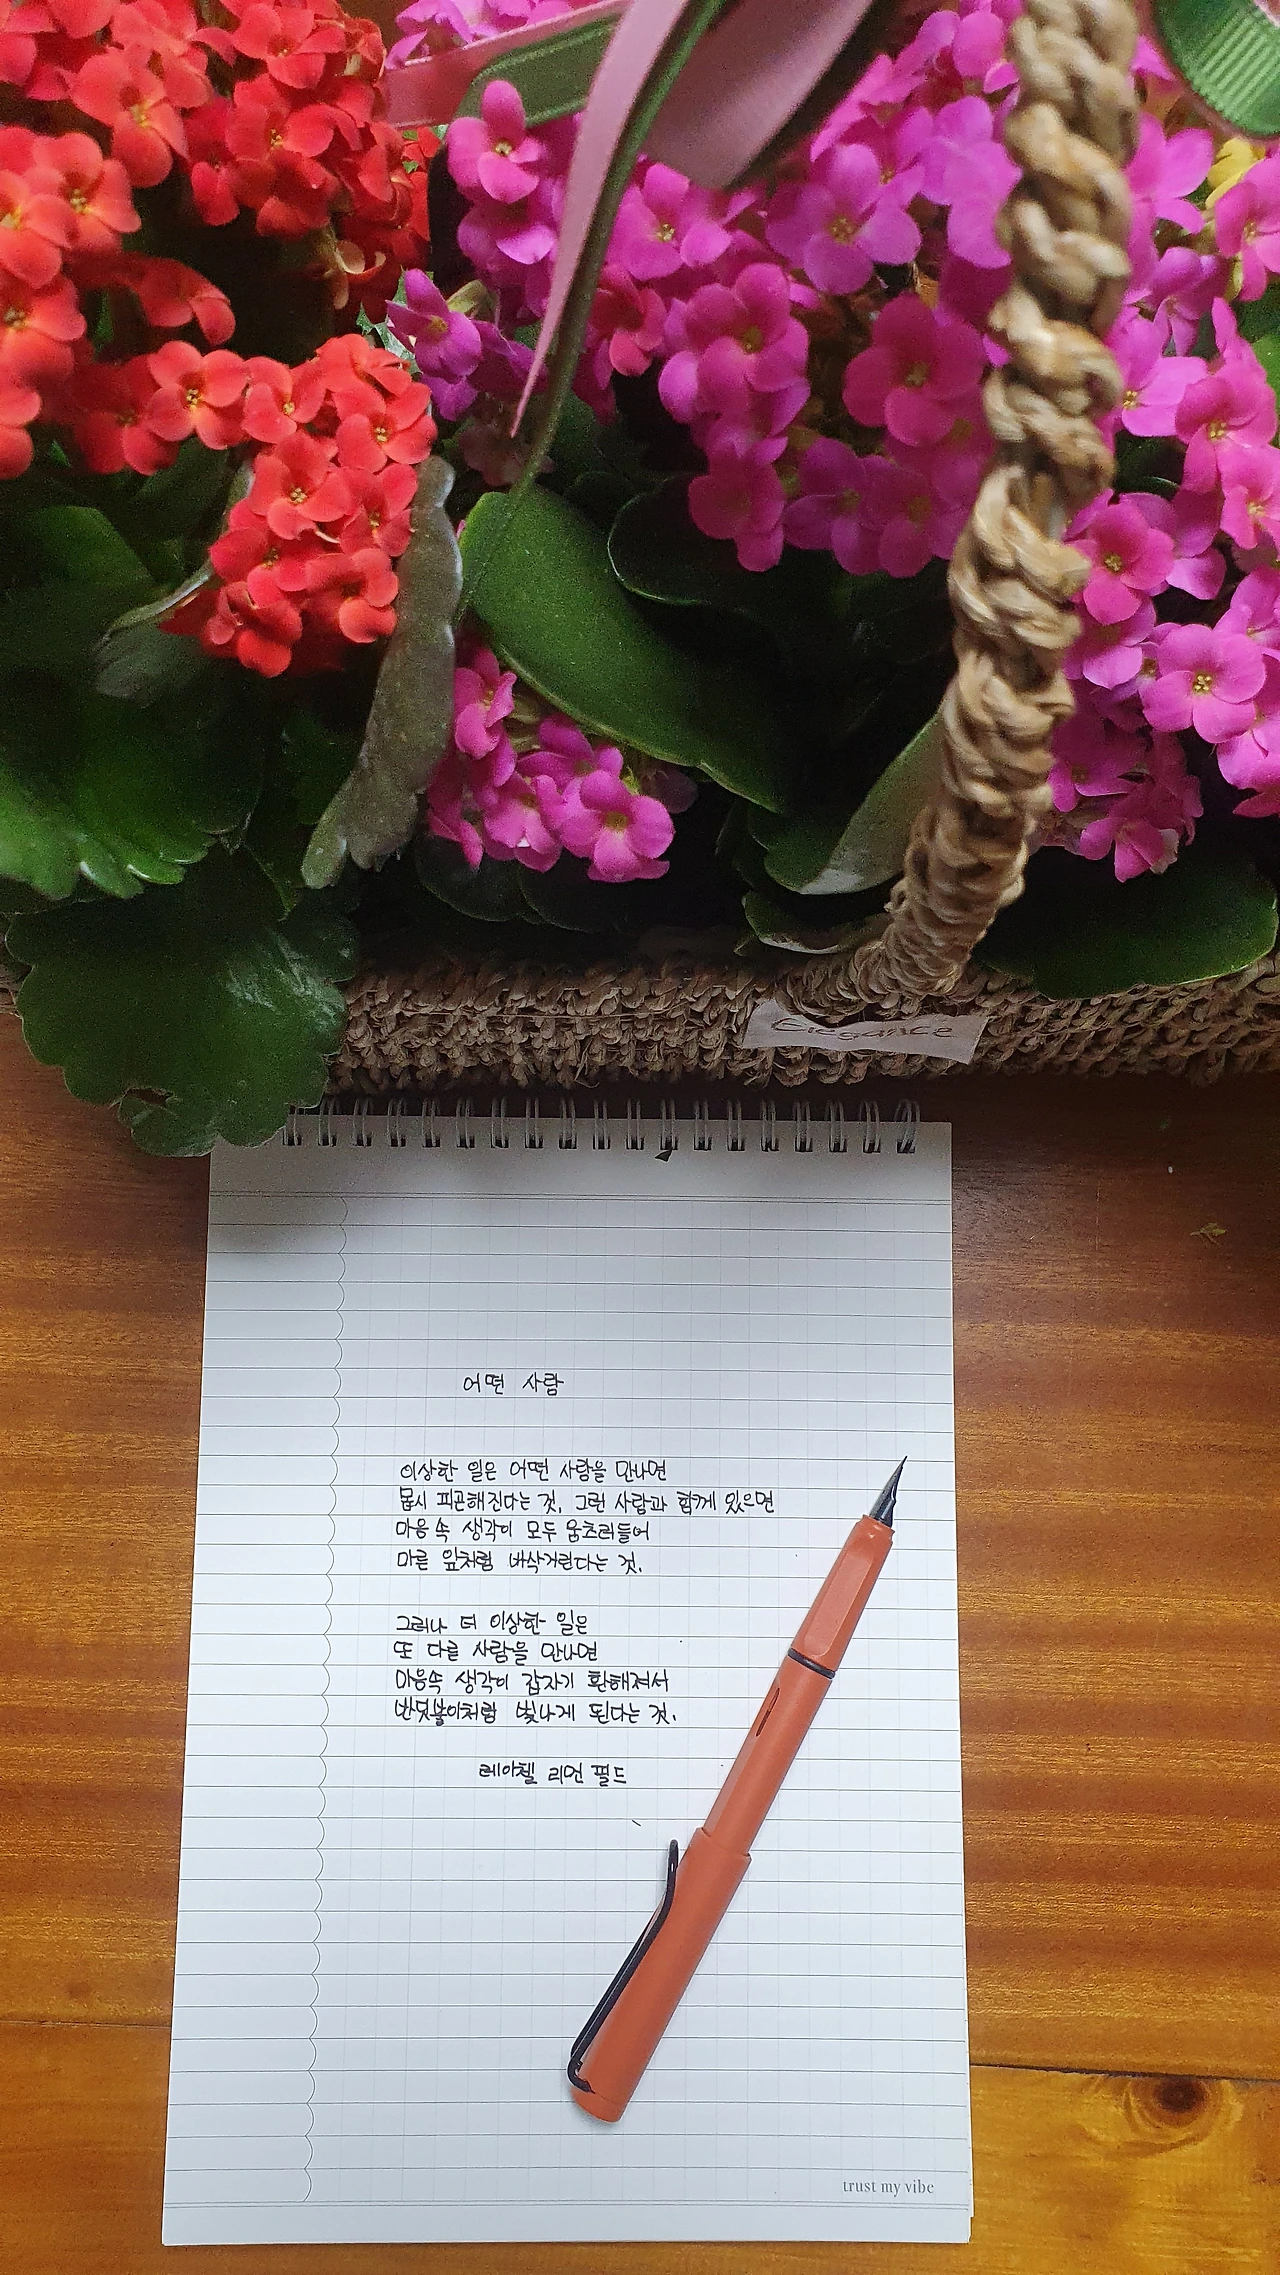 Elegance
어떤 사람
이상한 일은 어떤 사람을 만나면
몹시 피곤해진다는 것. 그런 사람과 함께 있으면
마음속 생각이 모두 움츠러들어
마른 잎처럼 바삭거린다는 것.
그러나 더 이상한 일은
또 다른 사람을 만나면
마음속 생각이 갑자기 환해져서
반딧불이처럼 빛나게 된다는 것.
레이첼 리먼 필드
trust my vibe